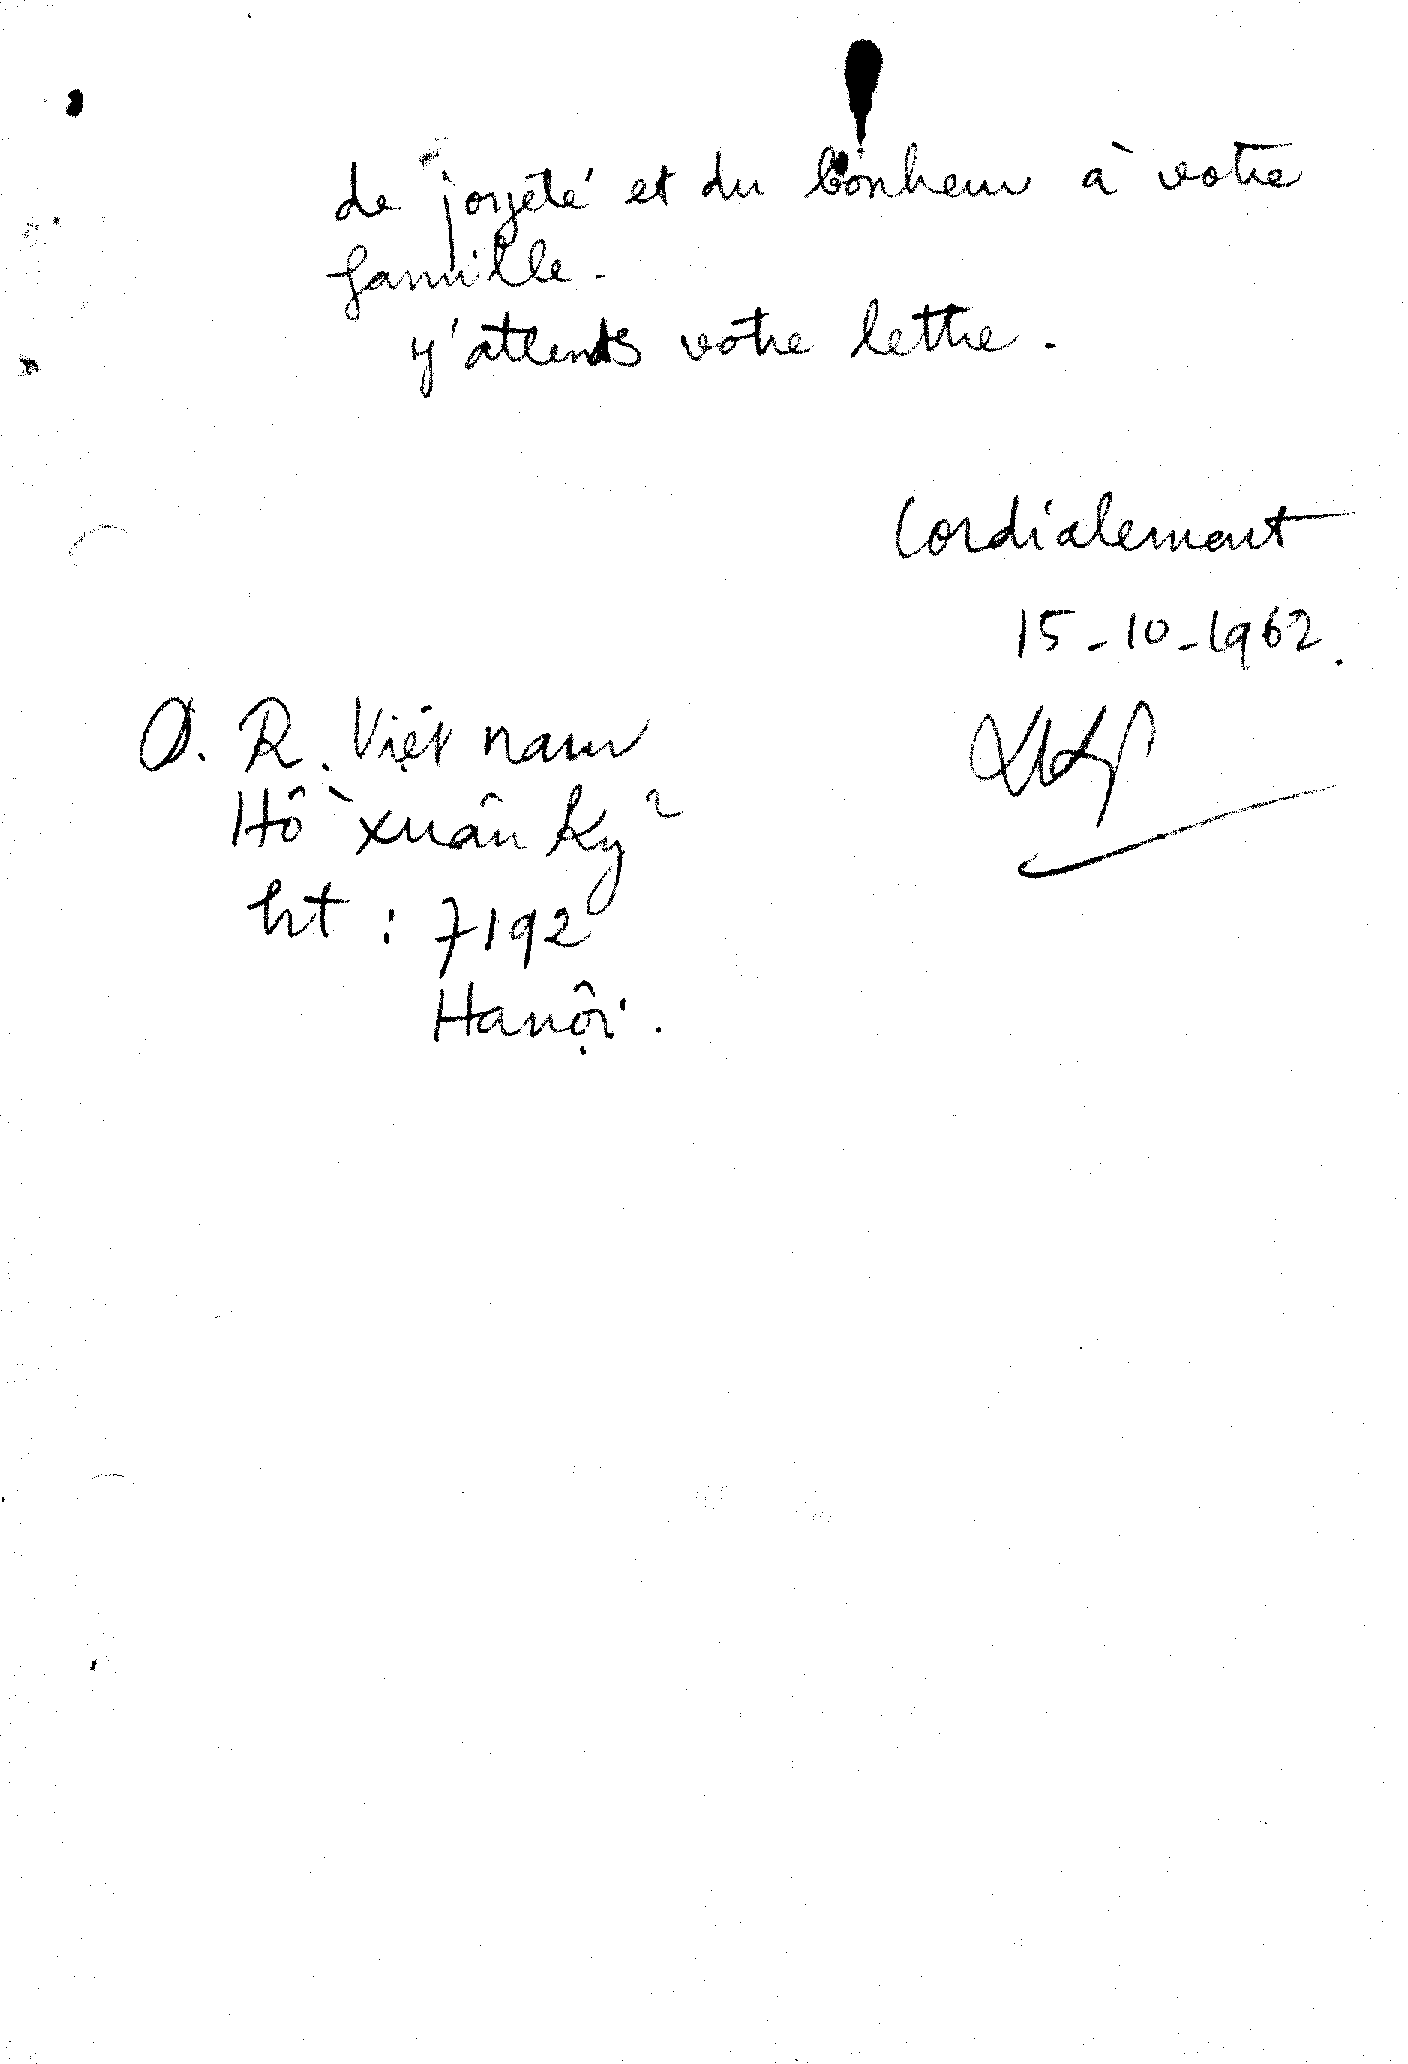 de joyeté et du bonheur à votre
famille.
J'attends votre lettre.
Cordialement
15-10-1962.
D. R. Việt nam
Hồ Xuân Kỷ
ht : 7192
Hanội.